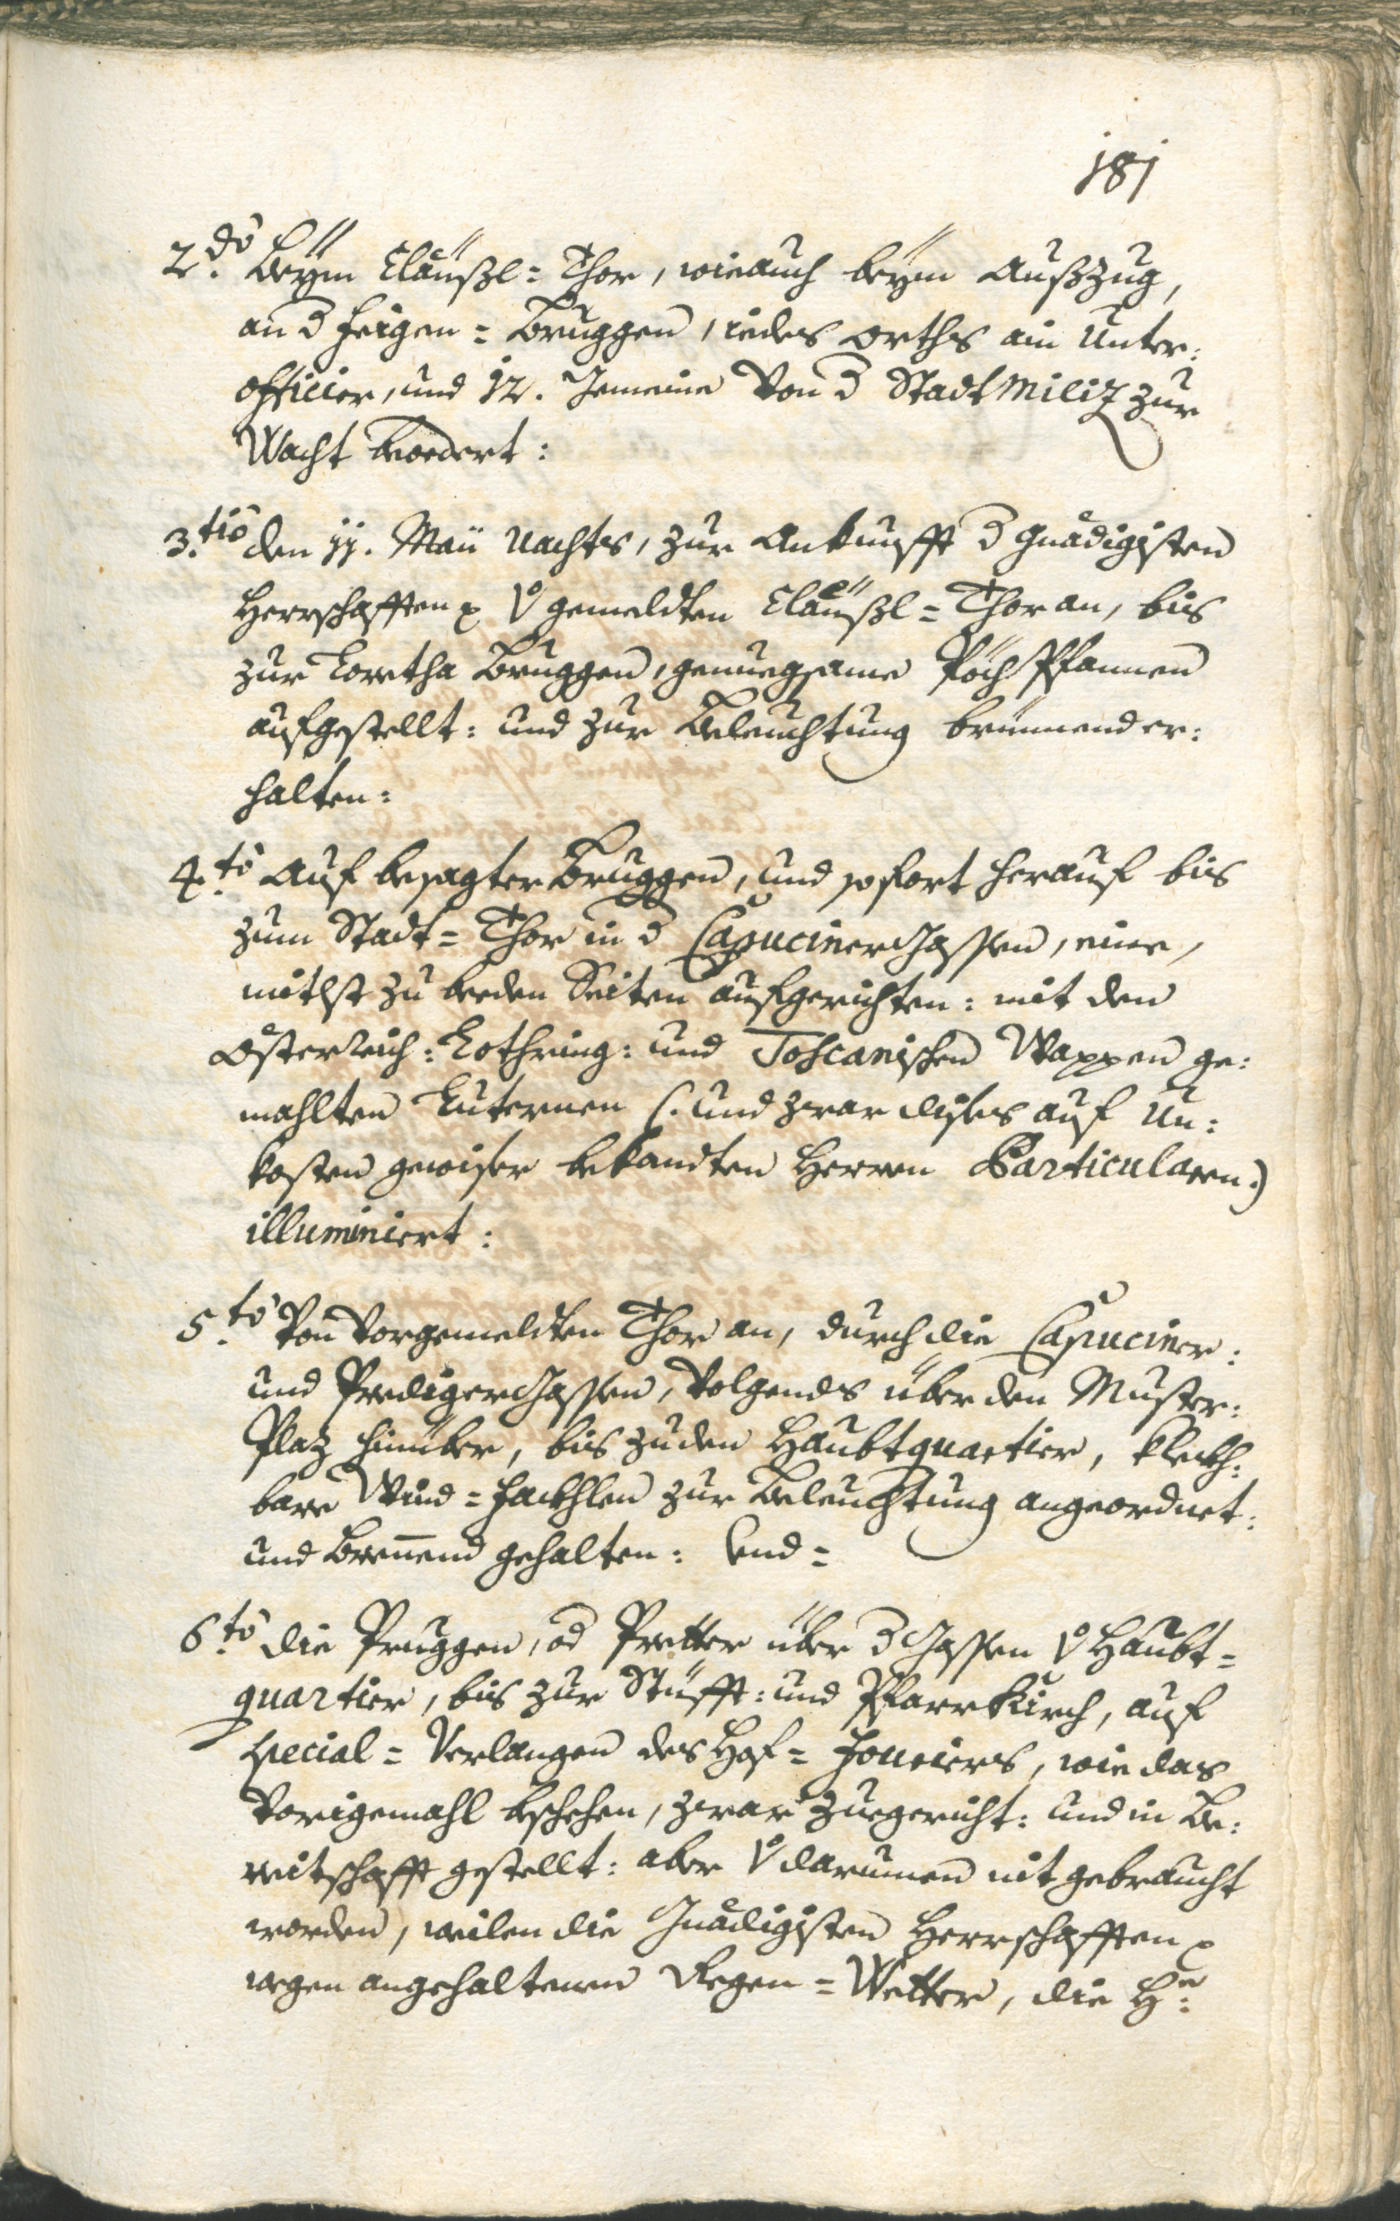 181
2.do Beÿm Cläußl= Thor, wie auch beÿm Außzug,
an d Feigen= Bruggen, iedes Orths ain Unter:
officier, und 12. Gemeine von d Stadt Miliz zur
Wacht beordert:
3.tio den 11. Maii Nachts, zur Ankunfft d gnädigisten
Herrschafften gemeldten Cläußl= Thor an, bis
zur Loretha Bruggen, genuegsame Pöch Pfannen
aufgestellt: und zur Beleuchtung brünnend er:
halten:
4.to Auf besagter Bruggen, und sofort herauf bis
zum Stadt= Thor in d Capuciner Gassen, eine,
mitlst zu beeden Seiten aufgerichten: mit den
Össterreich: Lothring: und Toscanischen Wappen ge:
mahlten Luternen (: und zwar dises auf Un:
kosten gewiser bekandten Herren Particularn:)
illuminiert:
5.to Von vorgemeldten Thor an, durch die Capuciner:
und Prediger Gassen, volgends über den Muster:
Plaz hinüber, bis zu den Haubtquartier, kleckh:
bare Wind= Fackhlen zur Beleuchtung angeordnet:
und brennend gehalten: Und=
6.to die Pruggen, od Pretter über d Gassen v Haubt=
quartier, bis zur Stüfft: und Pfarrkirch, auf
special= Verlangen des Hof= Fouriers, wie das
vorigemahl beschehen, zwar zuegericht: und in Be:
reitschafft gestellt: aber darumen nit gebraucht
worden, weilen die Gnädigisten Herrschafften
wegen angehaltenem Regen= Wetter, die H: